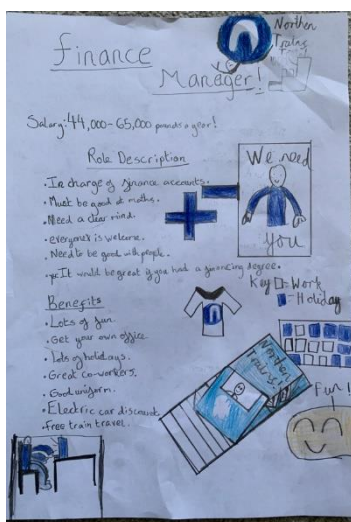 Northen
Trains
Finance
Manager!
Salary: 44,000-65,000 pounds a year!
Role Description
• In charge of finance accounts.
• Must be good at maths.
• Need a clear mind.
• everyone is welcome.
• Need to be good with people.
• It would be great if you had a financing degree.
We need
you
Key □=Work
■=Holiday
Benefits
• Lots of fun.
• Get your own office.
• lots of holidays.
• Great co-workers.
• Good uniform.
• Electric car discount.
• free train travel.
Northen
Trains
Fun!